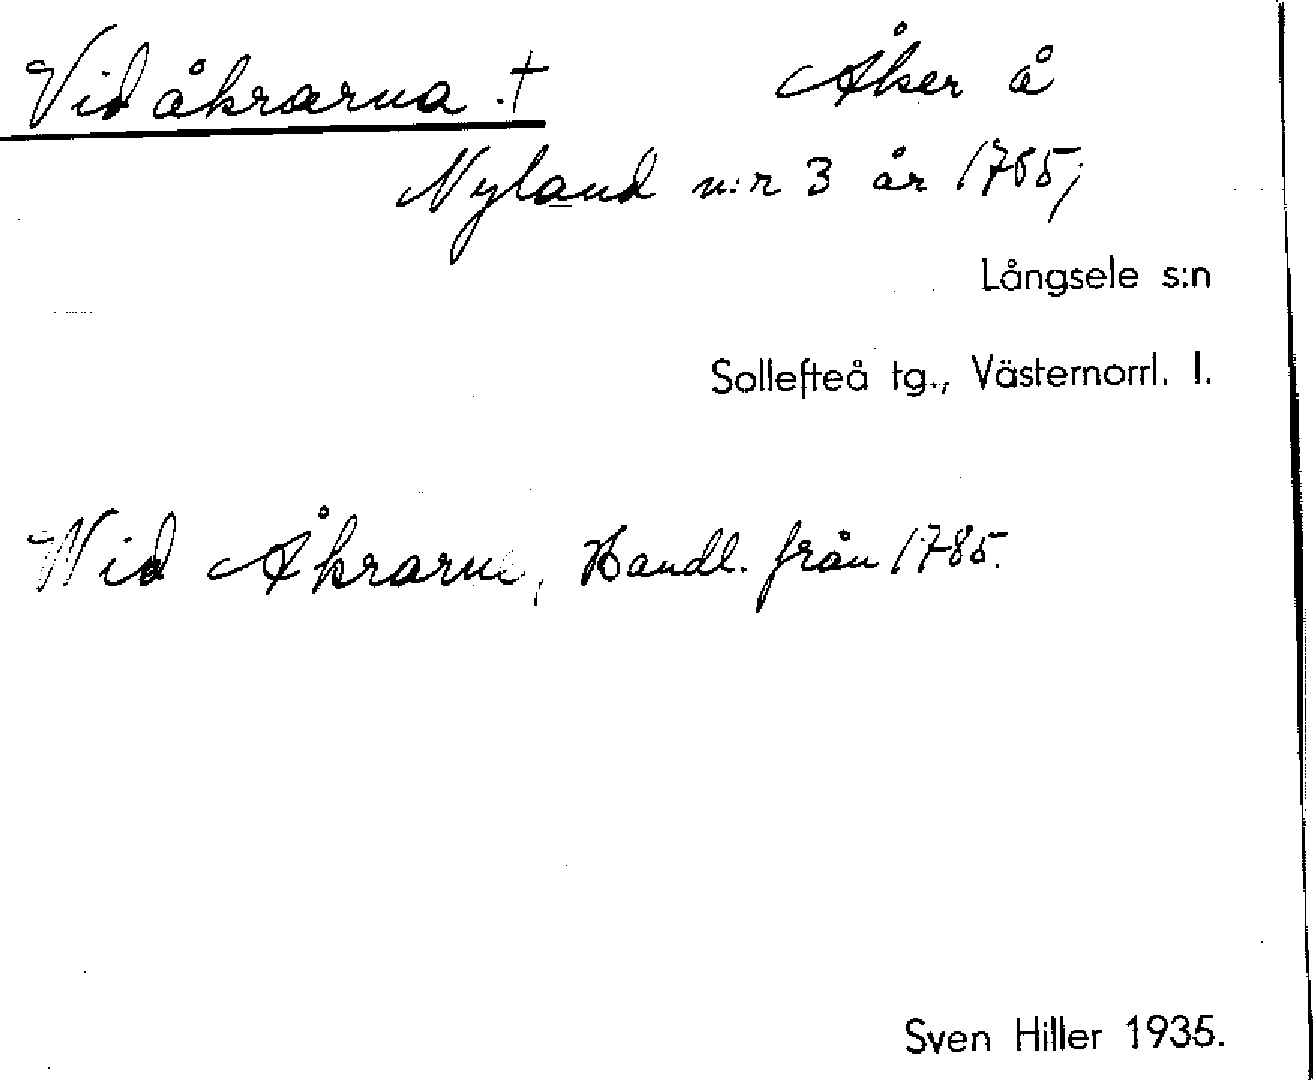 Vid åkrarna. † Åker å
Nyland n:r 3 år 1785,
Långsele s:n
Sollefteå tg., Västernorrl. l.
Wid Åkrarne, Handl. från 1785.
Sven Hiller 1935.